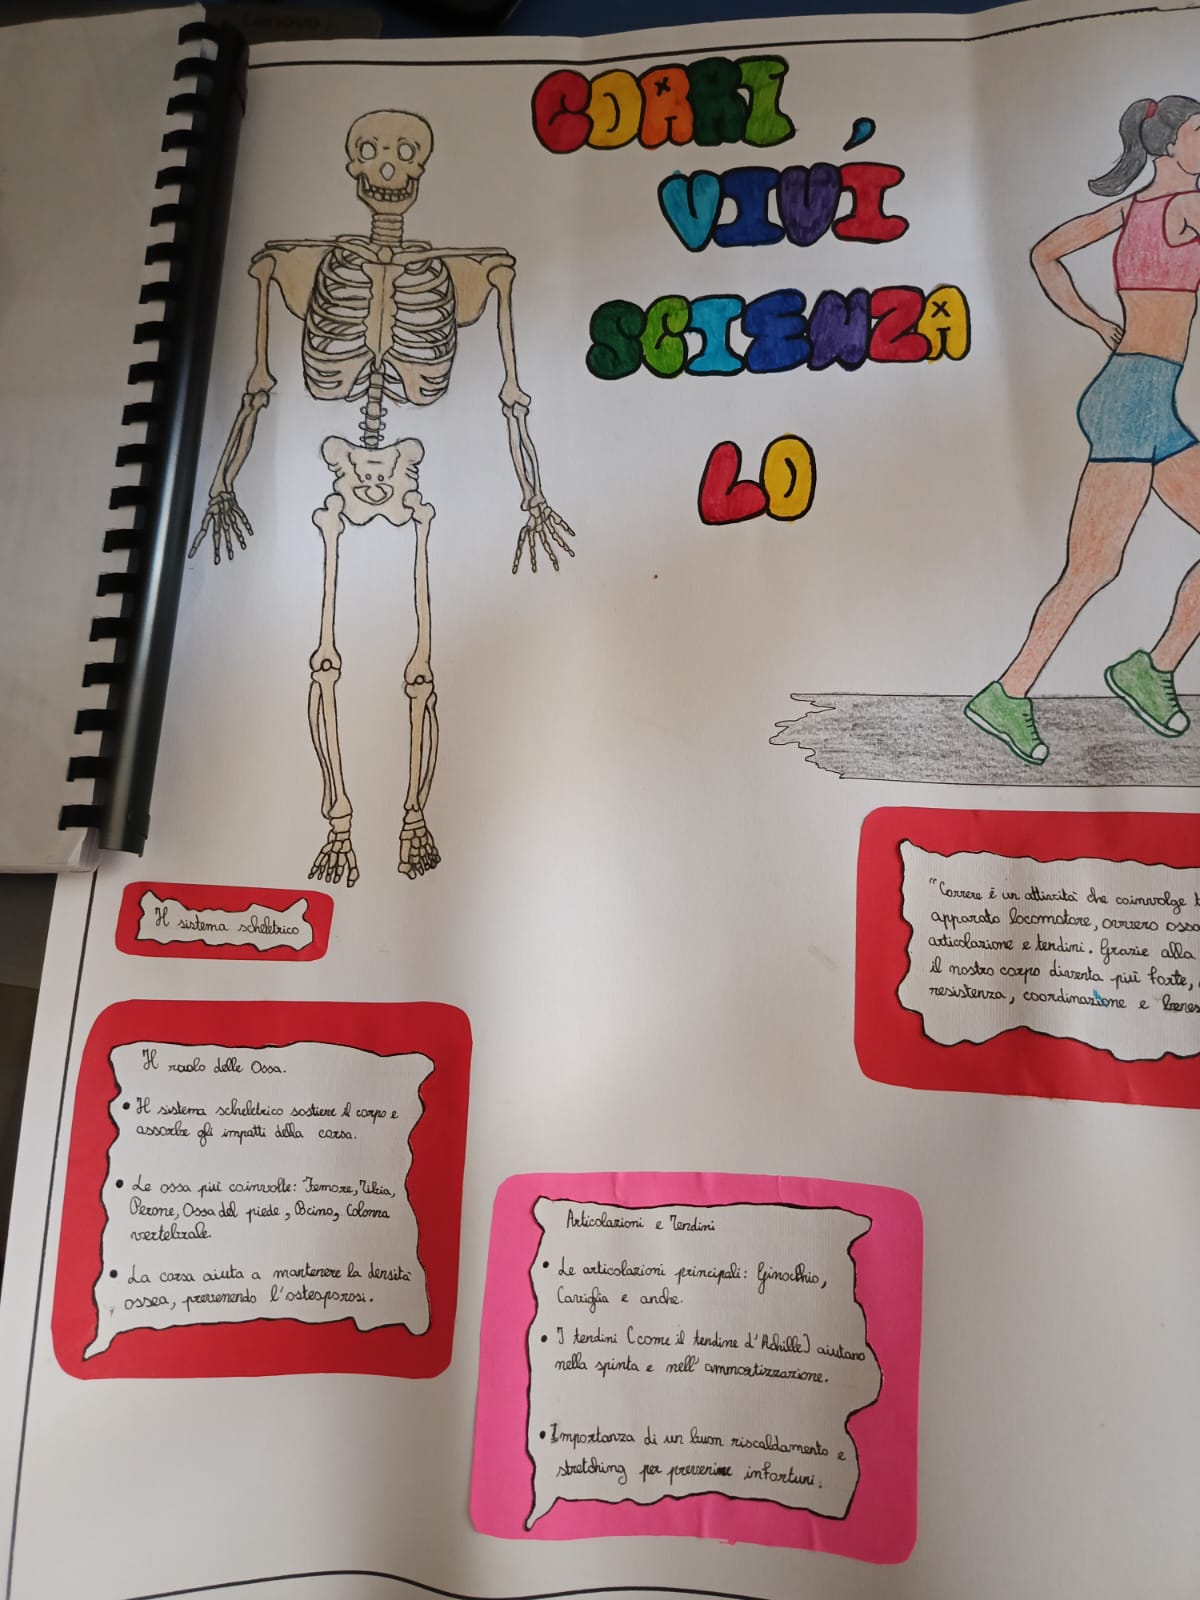 Lenovo
CORRI,
VIVI
SCIENZA
LO
Il sistema scheletrico
"Correre è un attività che coinvolge
apparato locomotore, ovvero ossa
articolazione e tendini. Grazie alla
il nostro corpo diventa più forte,
resistenza, coordinazione e
Il ruolo delle Ossa.
• Il sistema scheletrico sostiene il corpo e
assorbe gli impatti della corsa.
• Le ossa più coinvolte: Femore, Tibia,
Perone, Ossa del piede, Bcino, Colonna
vertebrale.
• La corsa aiuta a mantenere la densità
ossea, prevenendo l'osteoporosi.
Articolazioni e Tendini
• Le articolazioni principali: Ginocchio,
Caviglia e anche.
• I tendini (come il tendine d'Achille) aiutano
nella spinta e nell'ammortizzazione.
• Importanza di un buon riscaldamento e
stretching per prevenire infortuni.